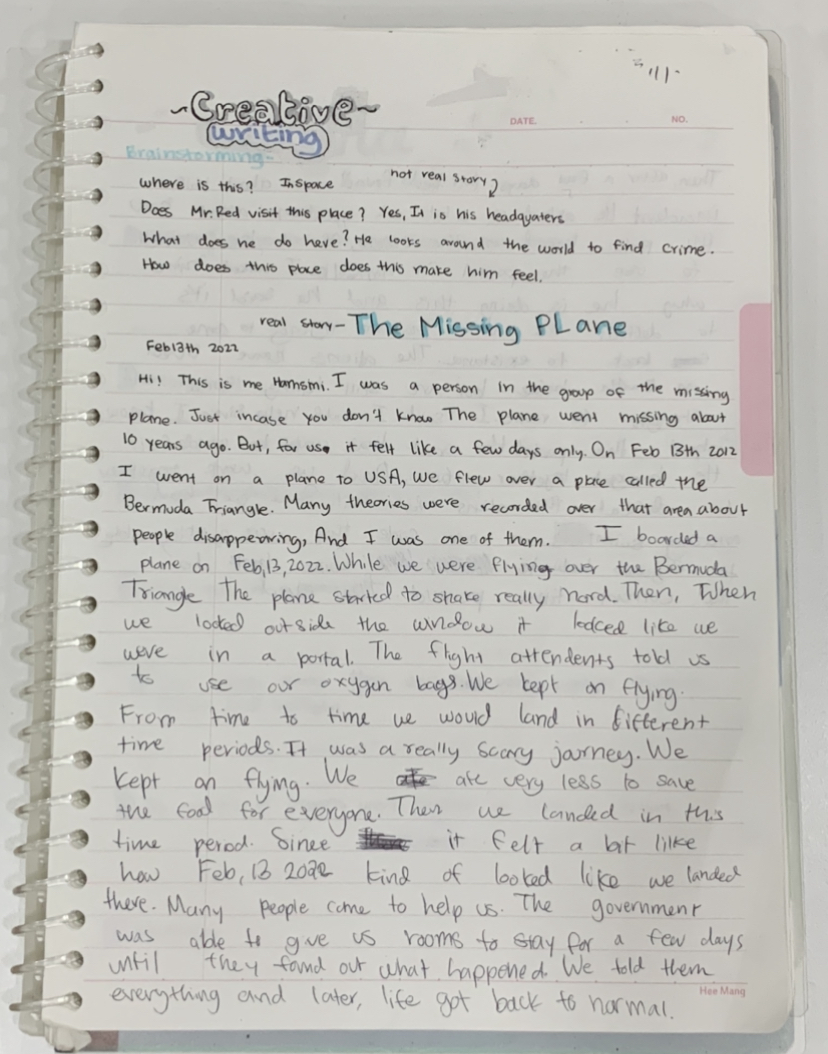 ~Creative~
writing
DATE. NO.
Brainstorming-
not real story
where is this? In space
Does Mr. Red visit this place? Yes, It is his headquaters
What does he do here? He looks around the world to find crime.
How does this place does this make him feel.
real story - The Missing PLane
Feb 13th 2022
Hi! This is me Hamsmi. I was a person in the group of the missing
plane. Just incase you don't know The plane went missing about
10 years ago. But, for us it felt like a few days only. On Feb 13th 2012
I went on a plane to USA, we flew over a place called the
Bermuda Triangle. Many theories were recorded over that area about
people disappearing, And I was one of them. I boarded a
plane on Feb, 13, 2022. While we were flying over the Bermuda
Triangle The plane started to shake really hard. Then, When
we looked outside the window it looked like we
were in a portal. The flight attendents told us
to use our oxygen bags. We kept on flying.
From time to time we would land in different
time periods. It was a really scary journey. We
kept on flying. We ate very less to save
the food for everyone. Then we landed in this
time period. Since it felt a bit lilke
how Feb, 13 2022 kind of looked like we landed
there. Many people came to help us. The government
was able to give us rooms to stay for a few days
until they found out what happened. We told them
everything and later, life got back to normal.
Hee Mang